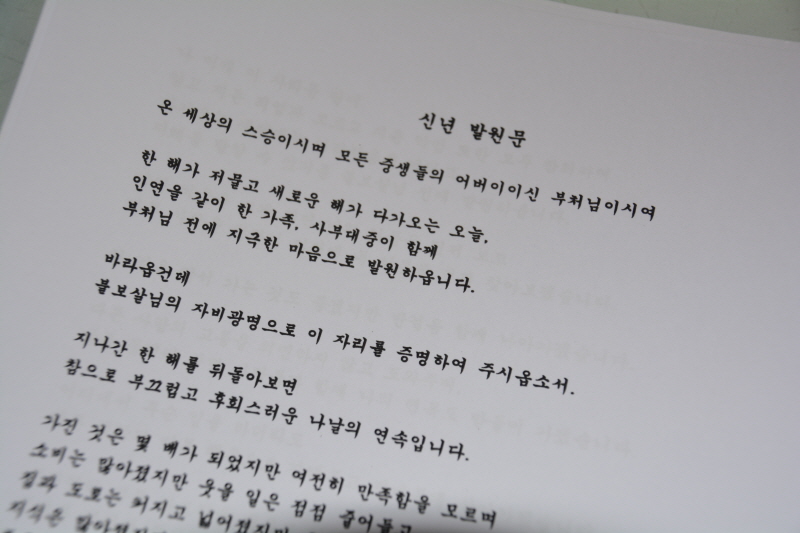 신년 발원문
온 세상의 스승이시며 모든 중생들의 어버이이신 부처님이시여
한 해가 저물고 새로운 해가 다가오는 오늘,
인연을 같이 한 가족, 사부대중이 함께
부처님 전에 지극한 마음으로 발원하옵니다.
바라옵건데
불보살님의 자비광명으로 이 자리를 증명하여 주시옵소서.
지나간 한 해를 뒤돌아보면
참으로 부끄럽고 후회스러운 나날의 연속입니다.
가진 것은 몇 배가 되었지만 여전히 만족함을 모르며
소비는 많아졌지만 웃을 일은 점점 줄어들고
집과 도로는 커지고 넓어졌지만
지식은 많아졌지만